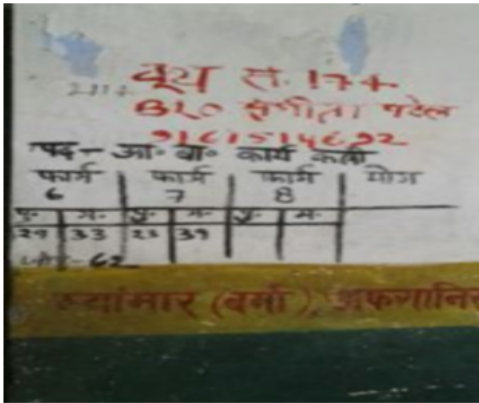 बूथ सं. 174
BLO संगीता पटेल
पद - आ॰ बा॰ कार्य कर्ता
फार्म फार्म फार्म योग
6 7 8
पु॰ म॰ पु॰ म॰ पु॰ म॰
29 33 23 39
62
म्यांमार (बर्मा), अफगानिस